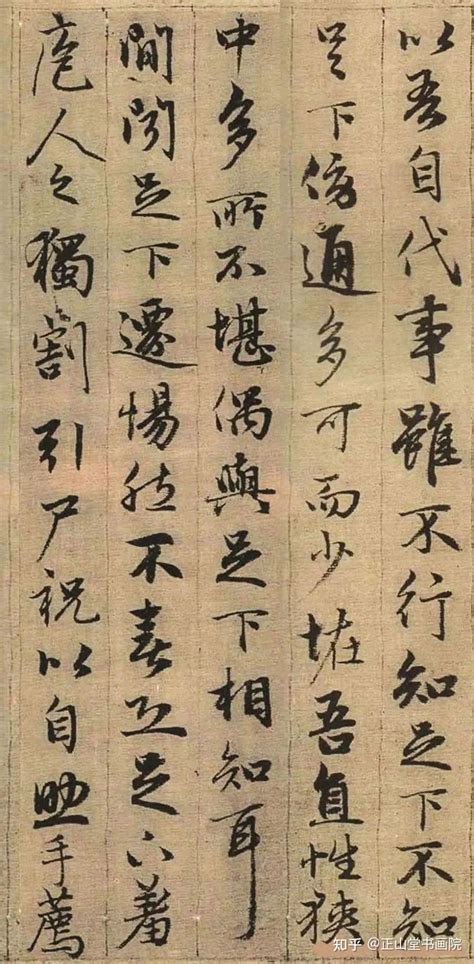 以吾自代事雖不行知足下不知
足下傍通多可而少恠吾直性狹
中多所不堪偶與足下相知耳
間聞足下遷惕然不喜恐足下羞
庖人之獨割引尸祝以自助手薦
知乎 @正山堂书画院